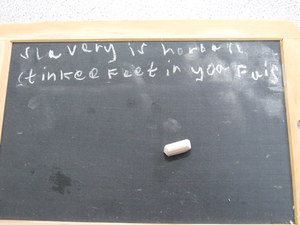 slavery is horball
stinkee Feet in your Fais